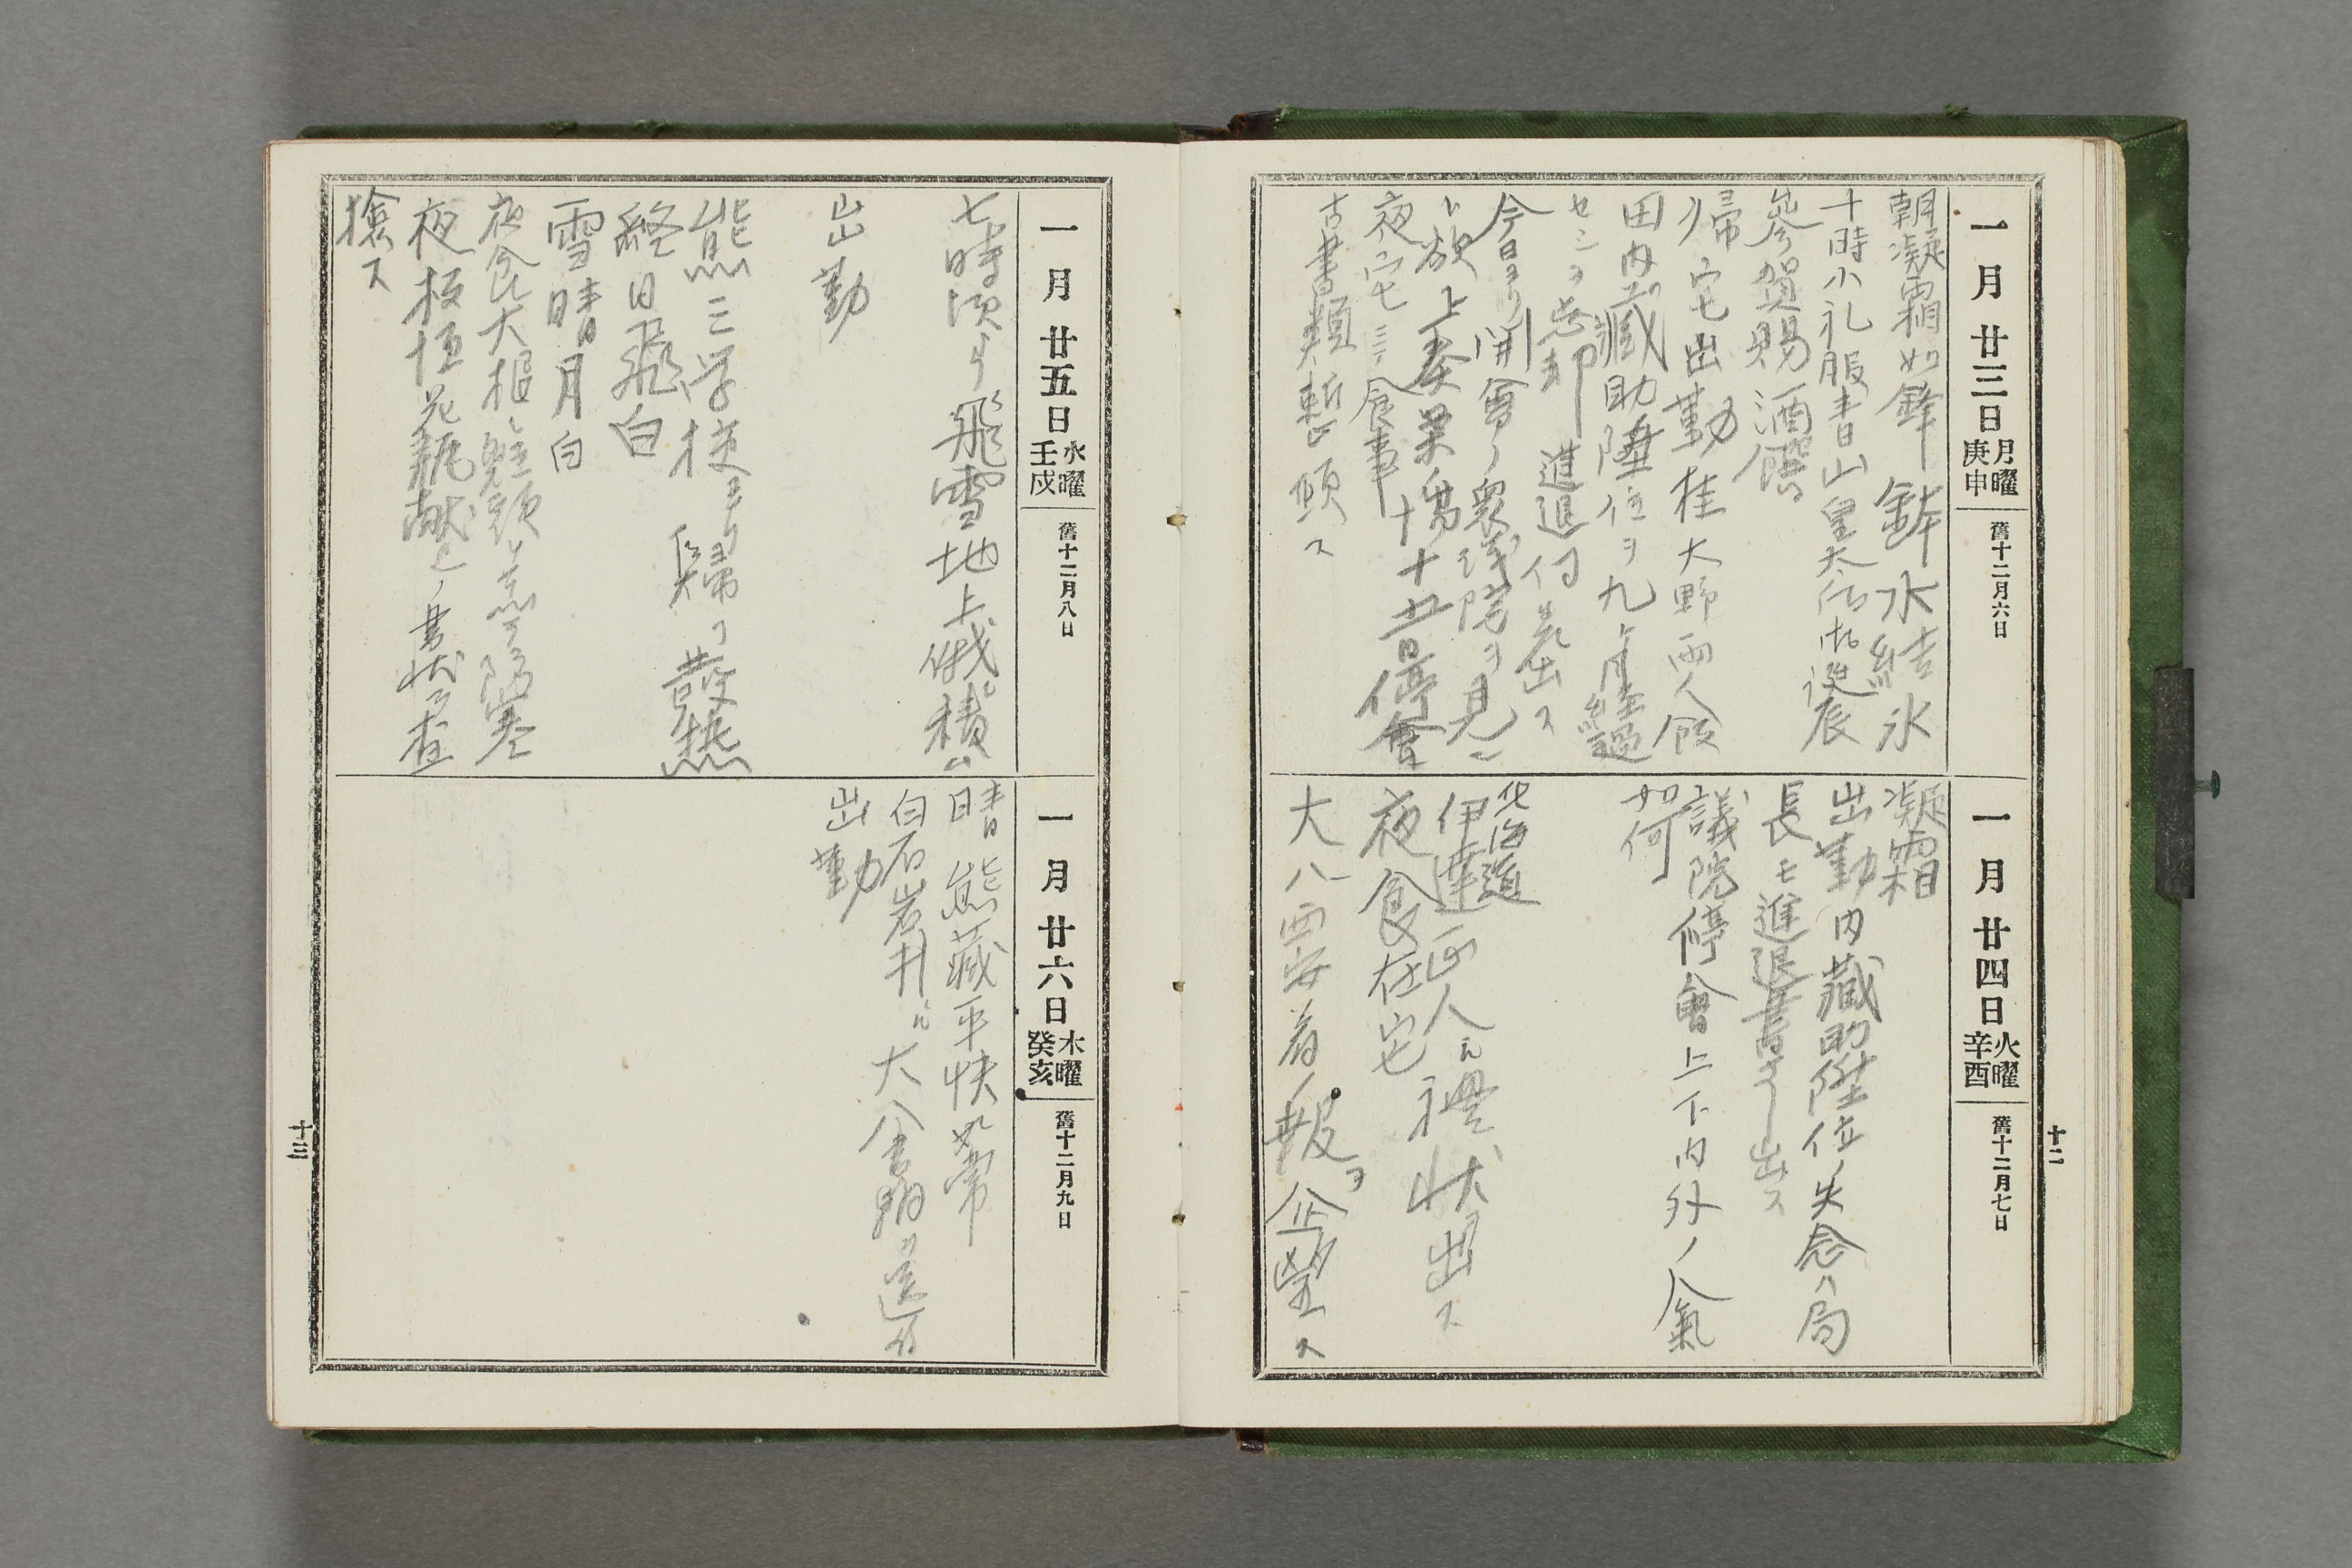 一月廿三日
月曜
庚申
舊十二月六日
朝凝霜如鋒 鉢水結氷
十時小礼服青山皇太后御誕辰
參賀賜酒饌
帰宅出勤桂大野両人飯
田内藏助陞位ヲ九ヶ月経過
セシヲ忘却 進退伺差出ス
今日ヨリ開會ノ衆議院ヲ見ン
ト欲 上奏案 十五日停會
夜宅ニテ食事
古書類整頓ス
一月廿四日
火曜
辛酉
舊十二月七日
凝霜
出勤内藏助陞位ノ失念ハ局
長モ進退書ヲ出ス
議院停會上下内外ノ人氣
如何
北海道
伊達正人ニ禮状出ス
夜食在宅
大八西安着ノ報ヲ企望ス
十二
一月廿五日
水曜
壬戌
舊十二月八日
七時頃ヨリ飛雪地上俄積
出勤
熊三学校ヨリ帰リ發熱
終日飛白
雪晴月白
夜食大根
夜板垣花瓶献上ノ書状ヲ査
撿ス
一月廿六日
木曜
癸亥
舊十二月九日
晴 熊藏平快如常
白石岩井ニ大八
出勤
十三